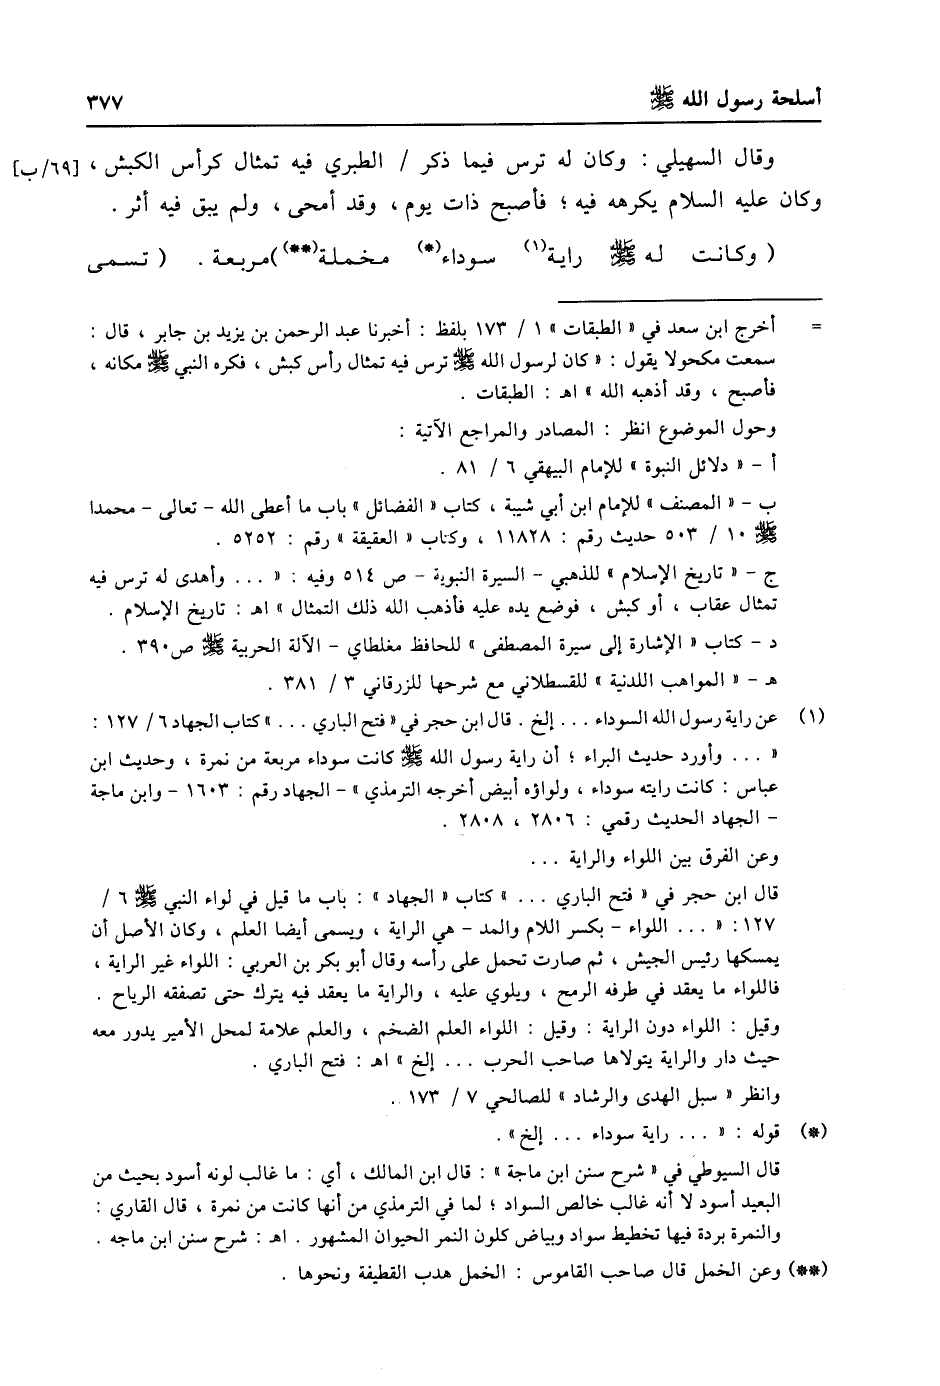 أسلحة رسول الله ﷺ ٣٧٧
وقال السهيلي : وكان له ترس فيما ذكر / الطبري فيه تمثال كرأس الكبش ، [٦٩/ب]
وكان عليه السلام يكرهه فيه ؛ فأصبح ذات يوم ، وقد أمحى ، ولم يبق فيه أثر .
( وكانت له ﷺ راية(١) سوداء(*) مخملة(**) )مربعة . ( تسمى
= أخرج ابن سعد في « الطبقات » ١ / ١٧٣ بلفظ : أخبرنا عبد الرحمن بن يزيد بن جابر ، قال :
سمعت مكحولا يقول : « كان لرسول الله ﷺ ترس فيه تمثال رأس كبش ، فكره النبي ﷺ مكانه ،
فأصبح ، وقد أذهبه الله » اهـ : الطبقات .
وحول الموضوع انظر : المصادر والمراجع الآتية :
أ - « دلائل النبوة » للإمام البيهقي ٦ / ٨١ .
ب - « المصنف » للإمام ابن أبي شيبة ، كتاب « الفضائل » باب ما أعطى الله - تعالى - محمدا
ﷺ ١٠ / ٥٠٣ حديث رقم : ١١٨٢٨ ، وكتاب « العقيقة » رقم : ٥٢٥٢ .
ج - « تاريخ الإسلام » للذهبي - السيرة النبوية - ص ٥١٤ وفيه : « ... وأهدى له ترس فيه
تمثال عقاب ، أو كبش ، فوضع يده عليه فأذهب الله ذلك التمثال » اهـ : تاريخ الإسلام .
د - كتاب « الإشارة إلى سيرة المصطفى » للحافظ مغلطاي - الآلة الحربية ﷺ ص٣٩٠ .
هـ - « المواهب اللدنية » للقسطلاني مع شرحها للزرقاني ٣ / ٣٨١ .
(١) عن راية رسول الله السوداء ... إلخ . قال ابن حجر في « فتح الباري ... » كتاب الجهاد ٦ / ١٢٧ :
« ... وأورد حديث البراء ؛ أن راية رسول الله ﷺ كانت سوداء مربعة من نمرة ، وحديث ابن
عباس : كانت رايته سوداء ، ولواؤه أبيض أخرجه الترمذي » - الجهاد رقم : ١٦٠٣ - وابن ماجة
- الجهاد الحديث رقمي : ٢٨٠٦ ، ٢٨٠٨ .
وعن الفرق بين اللواء والراية ...
قال ابن حجر في « فتح الباري ... » كتاب « الجهاد » : باب ما قيل في لواء النبي ﷺ ٦ /
١٢٧: « ... اللواء - بكسر اللام والمد - هي الراية ، ويسمى أيضا العلم ، وكان الأصل أن
يمسكها رئيس الجيش ، ثم صارت تحمل على رأسه وقال أبو بكر بن العربي : اللواء غير الراية ،
فاللواء ما يعقد في طرفه الرمح ، ويلوي عليه ، والراية ما يعقد فيه يترك حتى تصفقه الرياح .
وقيل : اللواء دون الراية : وقيل : اللواء العلم الضخم ، والعلم علامة لمحل الأمير يدور معه
حيث دار والراية يتولاها صاحب الحرب ... إلخ » اهـ : فتح الباري .
وانظر « سبل الهدى والرشاد » للصالحي ٧ / ١٧٣ .
(*) قوله : « ... راية سوداء ... إلخ» .
قال السيوطي في « شرح سنن ابن ماجة » : قال ابن المالك ، أي : ما غالب لونه أسود بحيث من
البعيد أسود لا أنه غالب خالص السواد ؛ لما في الترمذي من أنها كانت من نمرة ، قال القاري :
والنمرة بردة فيها تخطيط سواد وبياض كلون النمر الحيوان المشهور . اهـ : شرح سنن ابن ماجه .
(**) وعن الخمل قال صاحب القاموس : الخمل هدب القطيفة ونحوها .